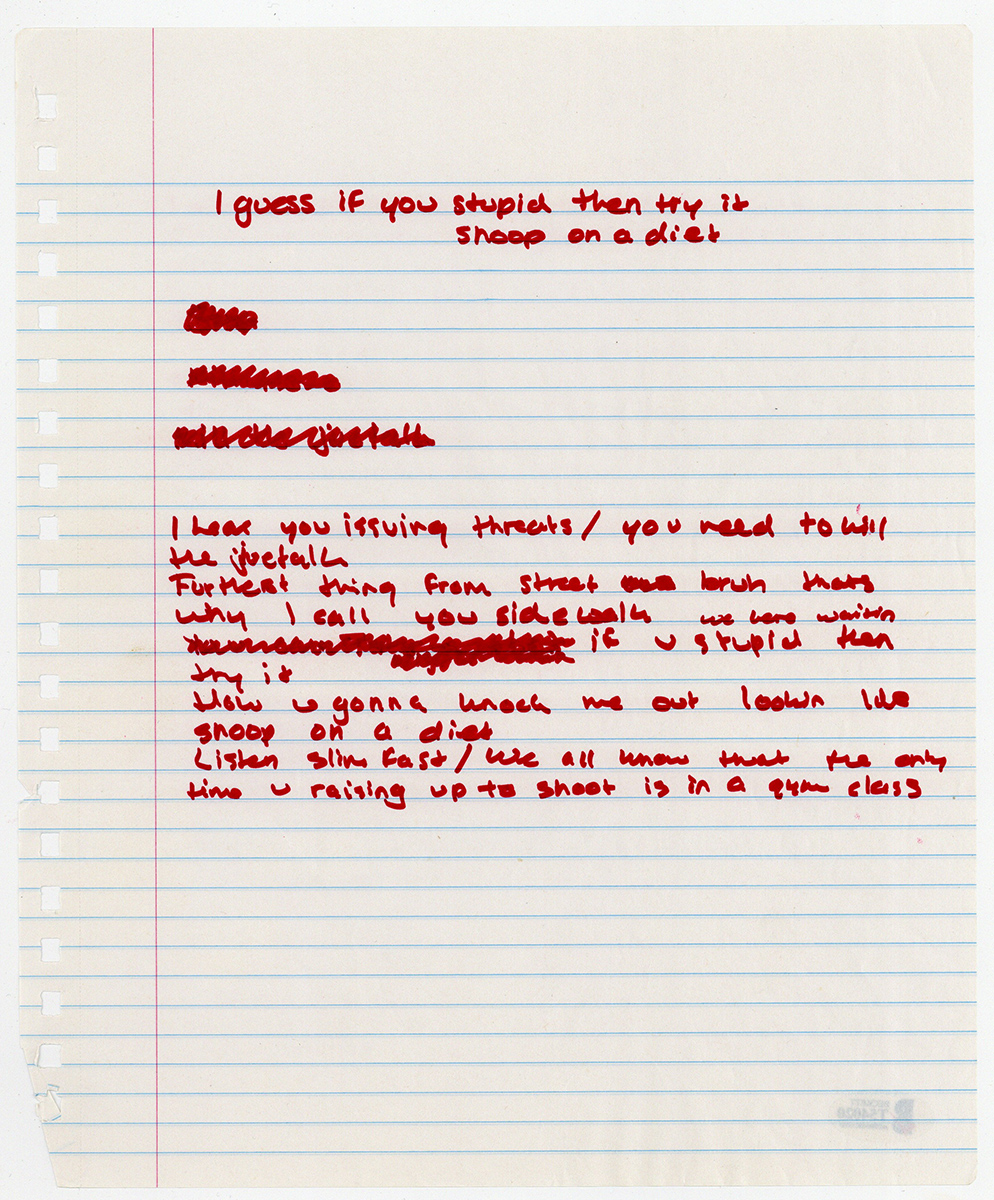 I guess if you stupid then try it
snoop on a diet
I hear you issuing threats / you need to kill
the jivetalk
Furthest thing from street bruh thats
why I call you sidewalk we here waitin
if u stupid then
try it
How u gonna knock me out lookin like
snoop on a diet
Listen slim fast / We all know that the only
time u raising up to shoot is in a gym class